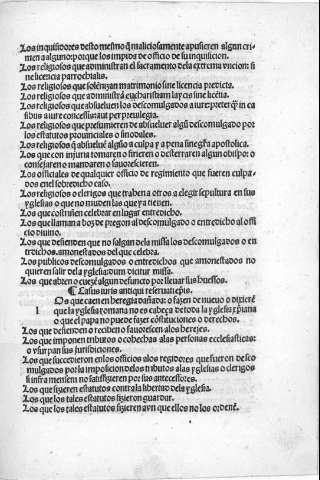 Los inquisidores desto mesmo q̃ maliciosamente apusieren algun cri-
men a alguno: porque los impide de officio de su inquisicion.
Los religiosos que administran el sacramento dela extrema vncion: si
ne licencia parrochialis.
Los religiosos que solẽnizan matrimonio sine licencia predicta.
Los religiosos que administrã eucharistiam laycis sine licẽtia.
Los religiosos que absueluen los descomulgados a iure preter q̃ in ca
sibus a iure concessis: aut per preuilegia.
Los religiosos que presumieren de absueluer algũ descomulgado por
los estatutos prouinciales o sinodales.
Los religiosos q̃ absueluẽ algũo a culpa y a pena sine grã apostolica.
Los que con injuria tomaren o firieren o desterraren algun obispo: o
consejaren o mandaren o fauorescieren.
Los officiales de qualquier officio de regimiento que fueren culpa-
dos enel sobredicho caso.
Los religiosos o clerigos que traben a otros a elegir sepultura en sus
yglesias o que no muden las que ya tienen.
Los que costriñen celebrar en lugar entredicho.
Los que llaman a boz de pregon al descomulgado o entredicho al offi
cio diuino.
Los que defienden que no salgan dela missa los descomulgados o en
tredichos: amonestados del que celebra.
Los publicos descomulgados o entredichos que amonestados no
quieren salir dela yglesia: dum dicitur missa.
Los que abren o cuezẽ algun defuncto por lleuar sus huessos.
¶ Casus iuris antiqui reseruati epis.
1 Os que caen en heregia dañada: o fazen de nueuo o dizierẽ
que la yglesia romana no es cabeça de toda la yglesia xp̃iana
o que el papa no puede fazer cõstituciones o derechos.
Los que defienden o reciben o fauorescen alos herejes.
Los que imponen tributos o cohechas alas personas ecclesiasticas:
o vsurpan sus jurisdiciones.
Los que succedieron enlos officios alos regidores que fueron desco
mulgados por la imposicion delos tributos alas yglesias o clerigos
si infra mensem no satisfizieren por sus antecessores.
Los que fizieren estatutos contra la libertad dela yglesia.
Los que los tales estatutos fizieren guardar.
Los que los tales estatutos fizieren avn que ellos no los ordenẽ.